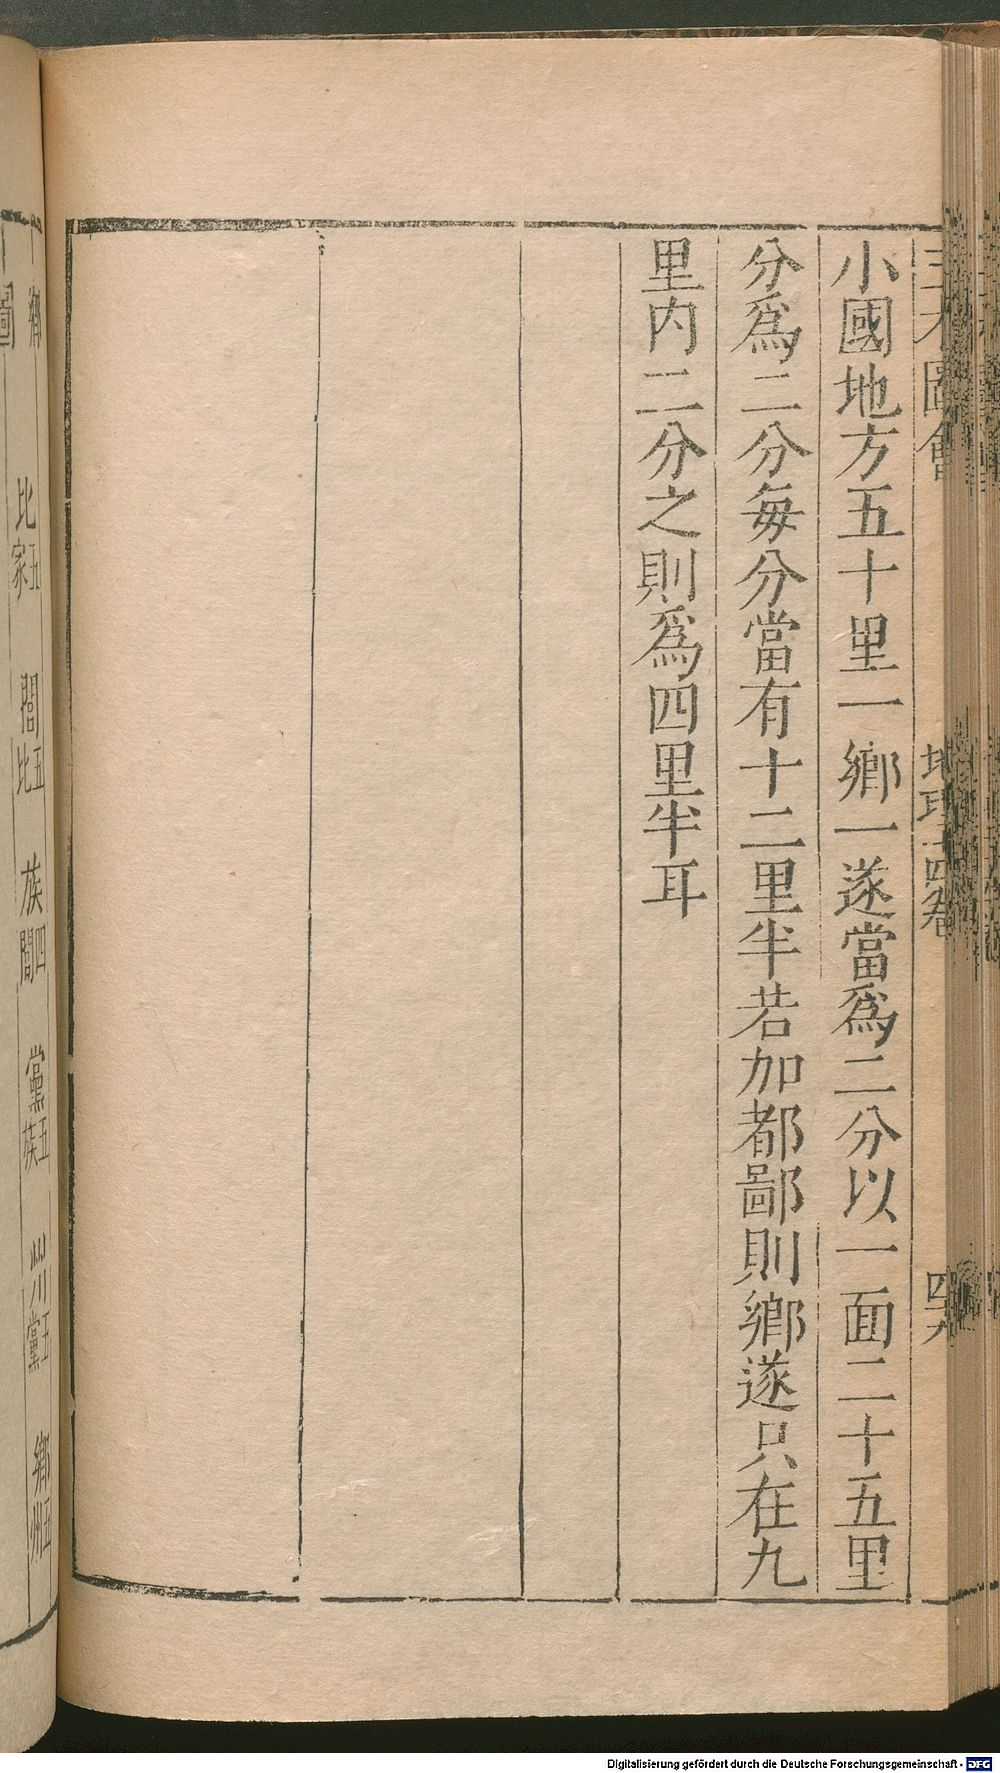 三才圖會 地理十四卷
小國地方五十里一鄉一遂當爲二分以一面二十五里
分爲二分每分當有十二里半若加都鄙則鄉遂只在九
里内二分之則爲四里半耳
鄉
比 五家 閭 五比 族 四閭 黨 五族 州 五黨 鄉 五州
圖
Digitalisierung gefördert durch die Deutsche Forschungsgemeinschaft - DFG